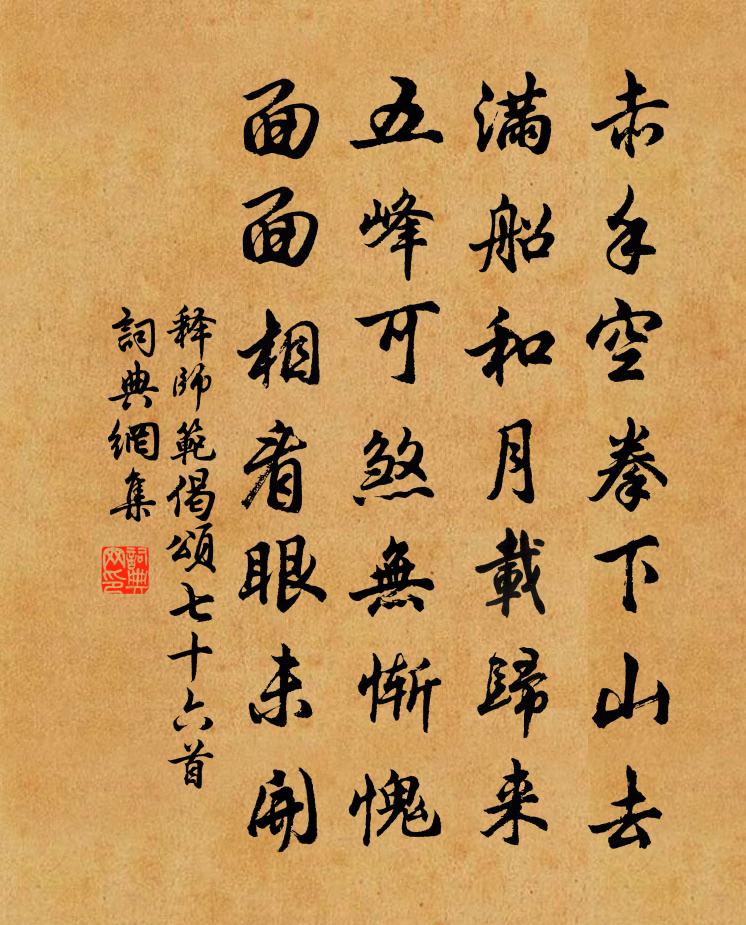 赤手空拳下山去
滿船和月載歸来
五峰可煞無慚愧
面面相看眼未開
释師範偈頌七十六首
詞典網集
詞典
网印